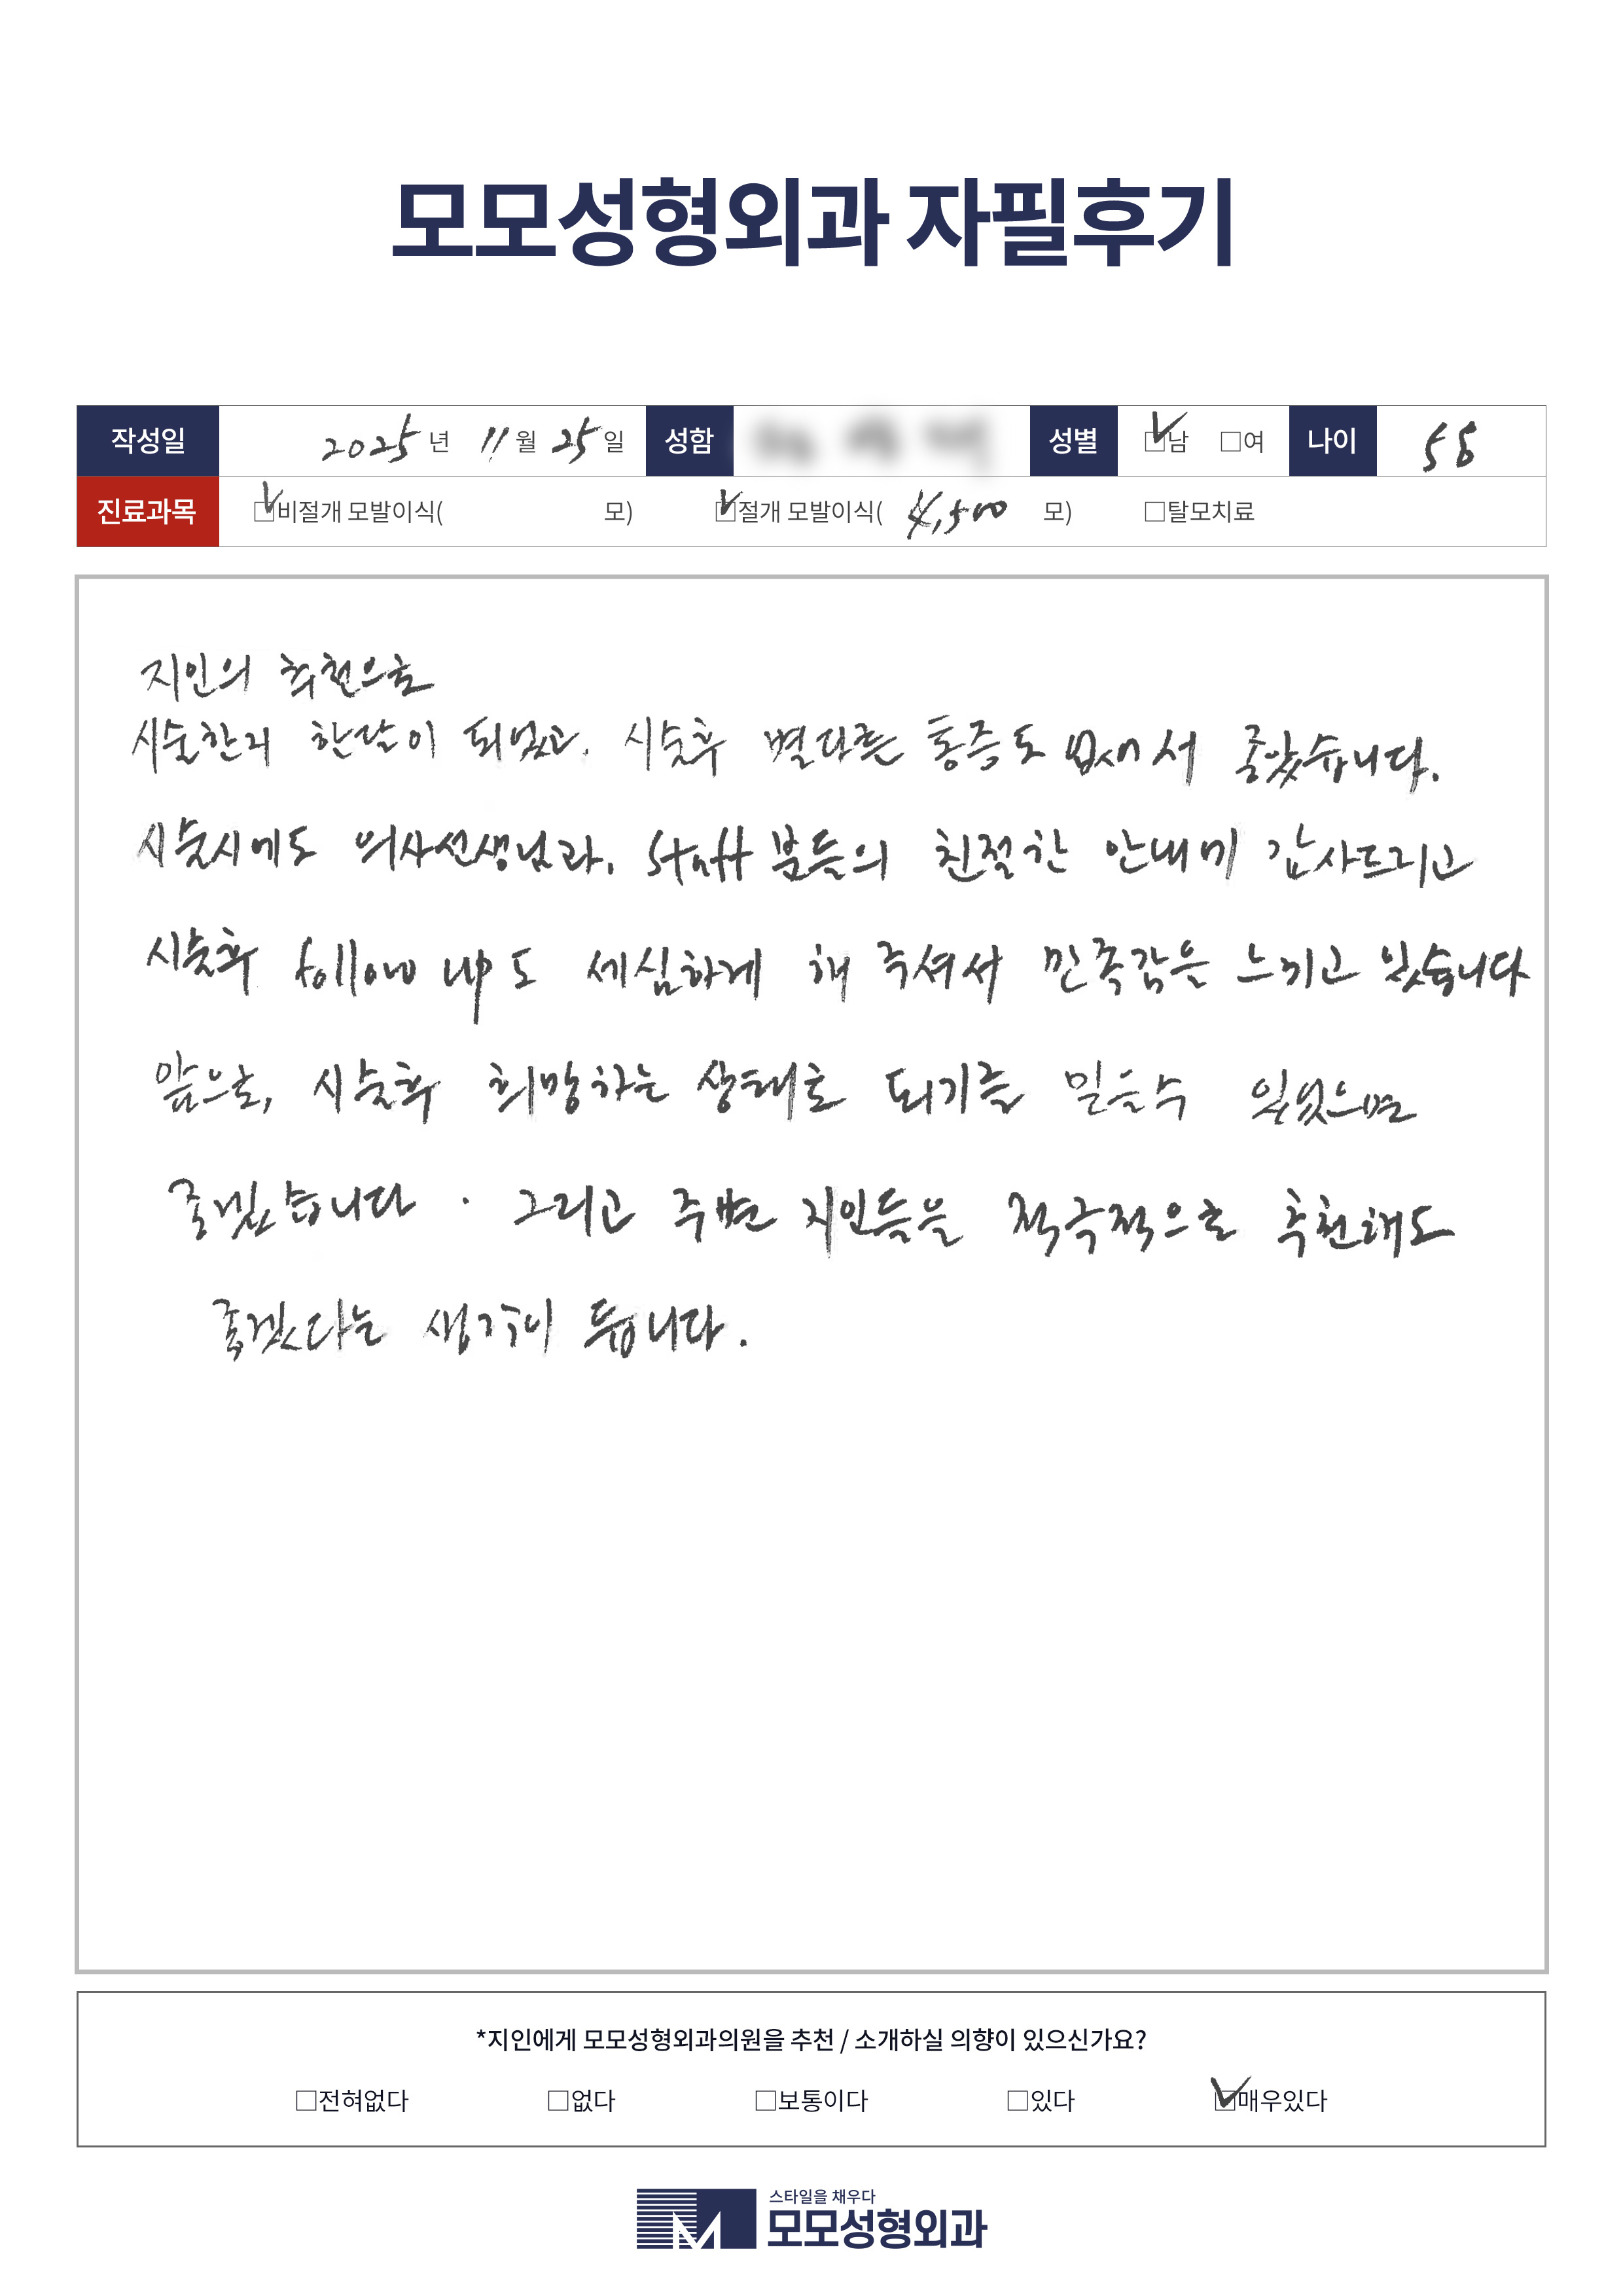 모모성형외과 자필후기
작성일 2025 년 11 월 25 일 성함 성별 ☑남 □여 나이 58
진료과목 ☑비절개 모발이식( 모) ☑절개 모발이식( 4,500 모) □탈모치료
지인의 추천으로
시술한지 한달이 되었고, 시술후 별다른 통증도 없어서 좋았습니다.
시술시에도 의사선생님과, staff 분들의 친절한 안내에 감사드리고
시술후 follow up 도 세심하게 해 주셔서 만족감을 느끼고 있습니다
앞으로, 시술후 희망하는 상태로 되기를 믿을수 있었으면
좋겠습니다. 그리고 주변 지인들을 적극적으로 추천해도
좋겠다는 생각이 듭니다.
*지인에게 모모성형외과의원을 추천 / 소개하실 의향이 있으신가요?
□전혀없다 □없다 □보통이다 □있다 ☑매우있다
스타일을 채우다
모모성형외과